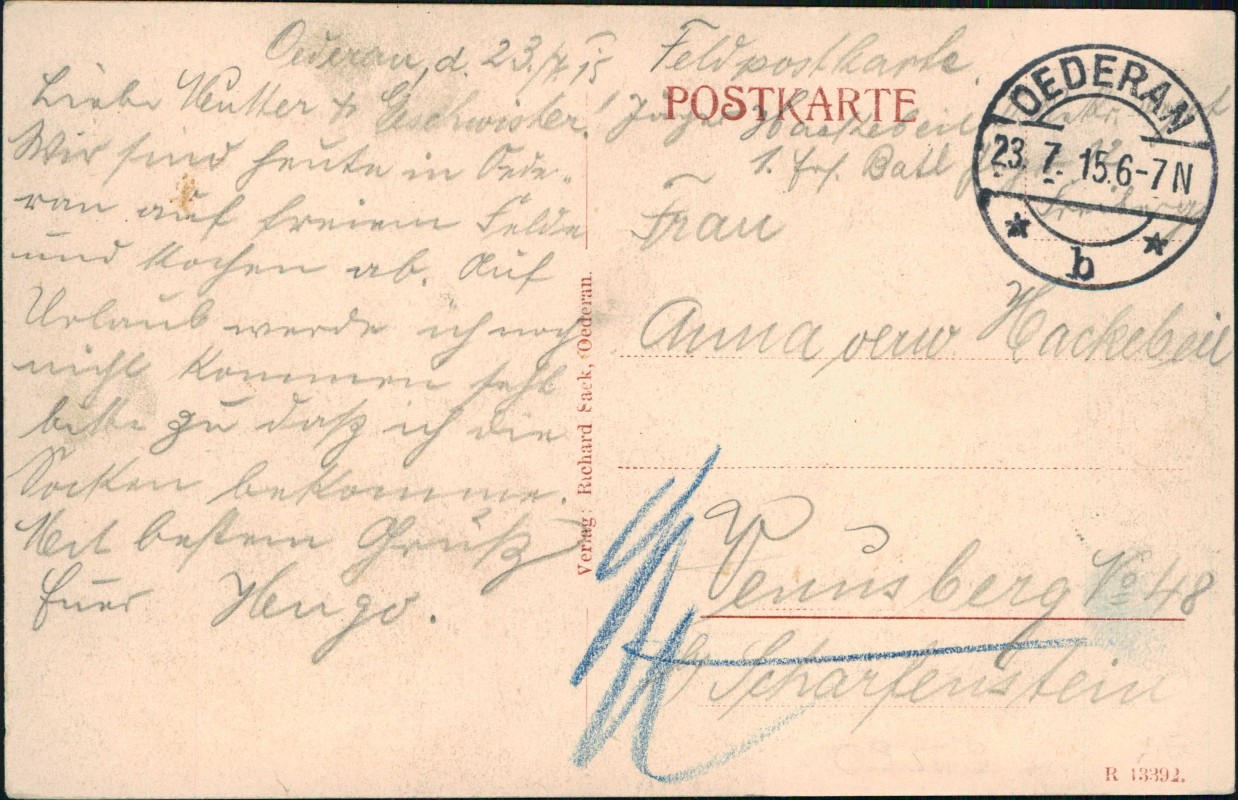 Oederan, d. 23./7. 15
Liebe Mutter & Geschwister!
Wir sind heute in Oede-
ran auf freiem Felde
und kochen ab. Auf
Urlaub werde ich noch
nicht kommen seht
bitte zu daß ich die
Socken bekomme.
Mit bestem Gruß
Euer Hugo.
Verlag: Richard Sack, Oederan.
Feldpostkarte.
POSTKARTE
Hackebeil
1. Ers. Batl
Freiberg
OEDERAN
23. 7. 15. 6-7 N
b
Frau
Anna verw Hackebeil
Venusberg No 48
b/ Scharfenstein
R 13392.